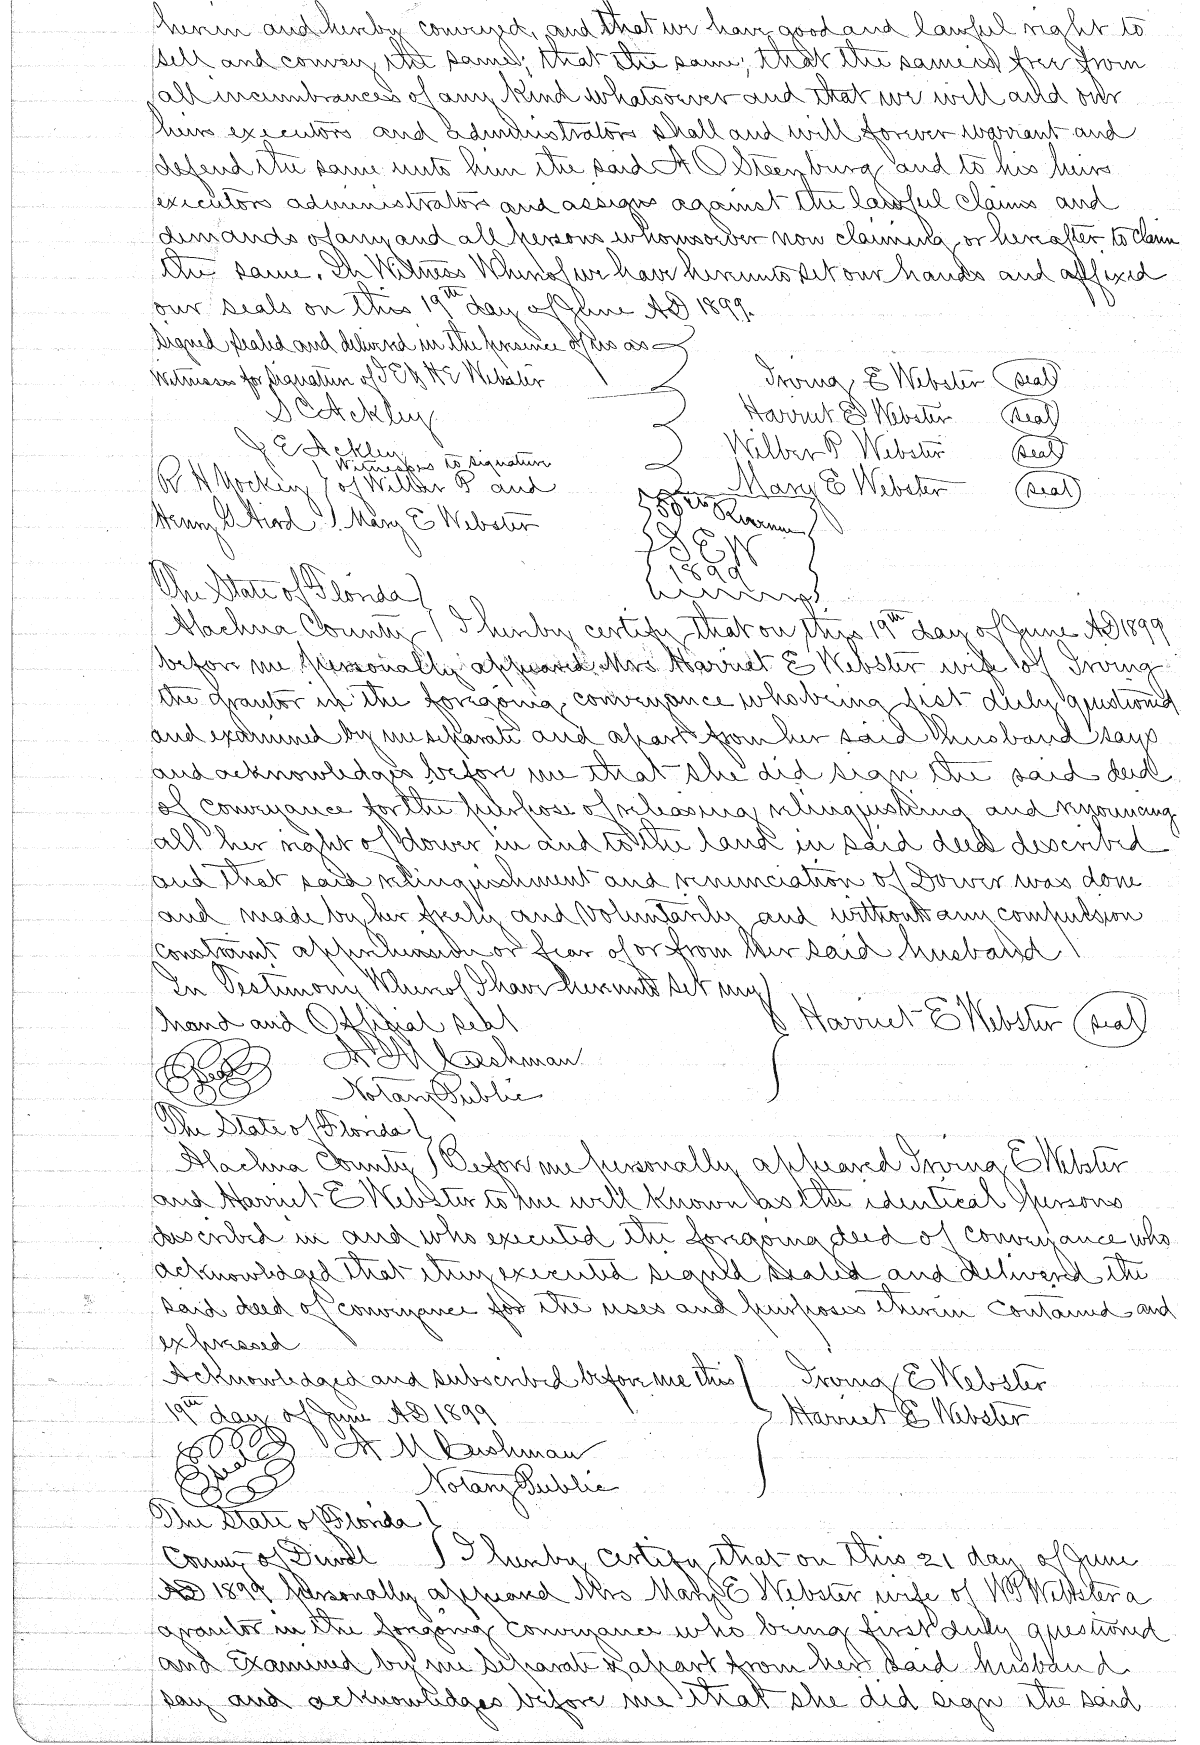 herein and hereby conveyed, and that we have good and lawful right to
sell and convey the same; that the same; that the same is free from
all incumbrances of any kind whatsoever and that we will and our
heirs executors and administrators shall and will forever warrant and
defend the same unto him the said A O Steenburg and to his heirs
executors administrators and assigns against the lawful claims and
demands of any and all persons whomsoever now claiming or hereafter to claim
the same. In Witness Whereof we have hereunto set our hands and affixed
our seals on this 19th day of June AD 1899.
Signed sealed and delivered in the presence of us as
Witnesses for signature of I E & H E Webster
S C Ackley
J E Ackley
Witnesses to signature
R H of Wilber P and
Henry G Aird Mary E Webster
Irving E Webster (seal)
Harriet E Webster (seal)
Wilber P Webster (seal)
Mary E Webster (seal)
50 cts Revenue
I E W
1899
The State of Florida
Alachua County I hereby certify that on this 19th day of June AD 1899
before me personally appeared Mrs Harriet E Webster wife of Irving
the grantor in the foregoing conveyance who being fist duly questioned
and examined by me separate and apart from her said husband says
and acknowledges before me that she did sign the said deed
of conveyance for the purpose of releasing relinquishing and renouncing
all her right of dower in and to the land in said deed described
and that said relinquishment and renunciation of Dower was done
and made by her freely and Voluntarily and without any compulsion
constraint apprehension or fear of or from her said husband
In Testimony Whereof I have hereunto set my
hand and Official seal
Harriet E Webster (seal)
(Seal) A M Cushman
Notary Public
The State of Florida
Alachua County Before me personally appeared Irving E Webster
and Harriet E Webster to me well known as the identical persons
described in and who executed the foregoing deed of conveyance who
acknowledged that they executed signed sealed and delivered the
said deed of conveyance for the uses and purposes therein contained and
expressed
Acknowledged and subscribed before me this
19th day of June AD 1899
Irving E Webster
Harriet E Webster
(Seal) A M Cushman
Notary Public
The State of Florida
County of Duval I hereby certify that on this 21 day of June
AD 1899 personally appeared Mrs Mary E Webster wife of W P Webster a
grantor in the foregoing conveyance who being first duly questioned
and Examined by me separate & apart from her said husband
say and acknowledges before me that she did sign the said